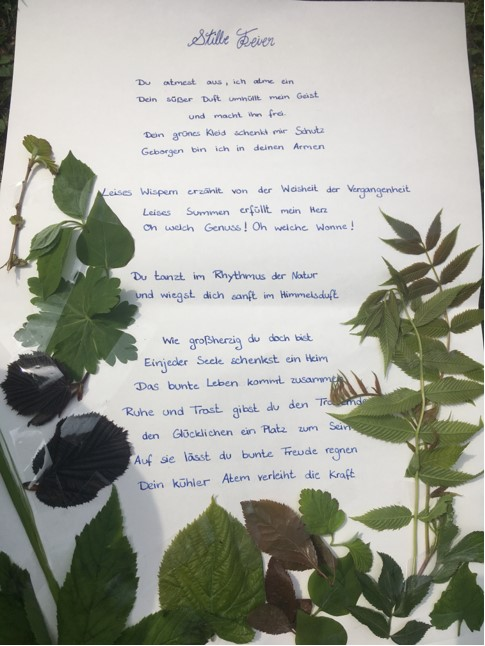 Stille Feier
Du atmest aus, ich atme ein
Dein süßer Duft umhüllt mein Geist
und macht ihn frei.
Dein grünes Kleid schenkt mir Schutz
Geborgen bin ich in deinen Armen
Leises Wispern erzählt von der Weisheit der Vergangenheit
Leises Summen erfüllt mein Herz
Oh welch Genuss! Oh welche Wonne!
Du tanzt im Rhythmus der Natur
und wiegst dich sanft im Himmelsduft
Wie großherzig du doch bist
Einjeder Seele schenkst ein Heim
Das bunte Leben kommt zusammen
Ruhe und Trost gibst du den
den Glücklichen ein Platz zum Sein
Auf sie lässt du bunte Freude regnen
Dein kühler Atem verleiht die Kraft